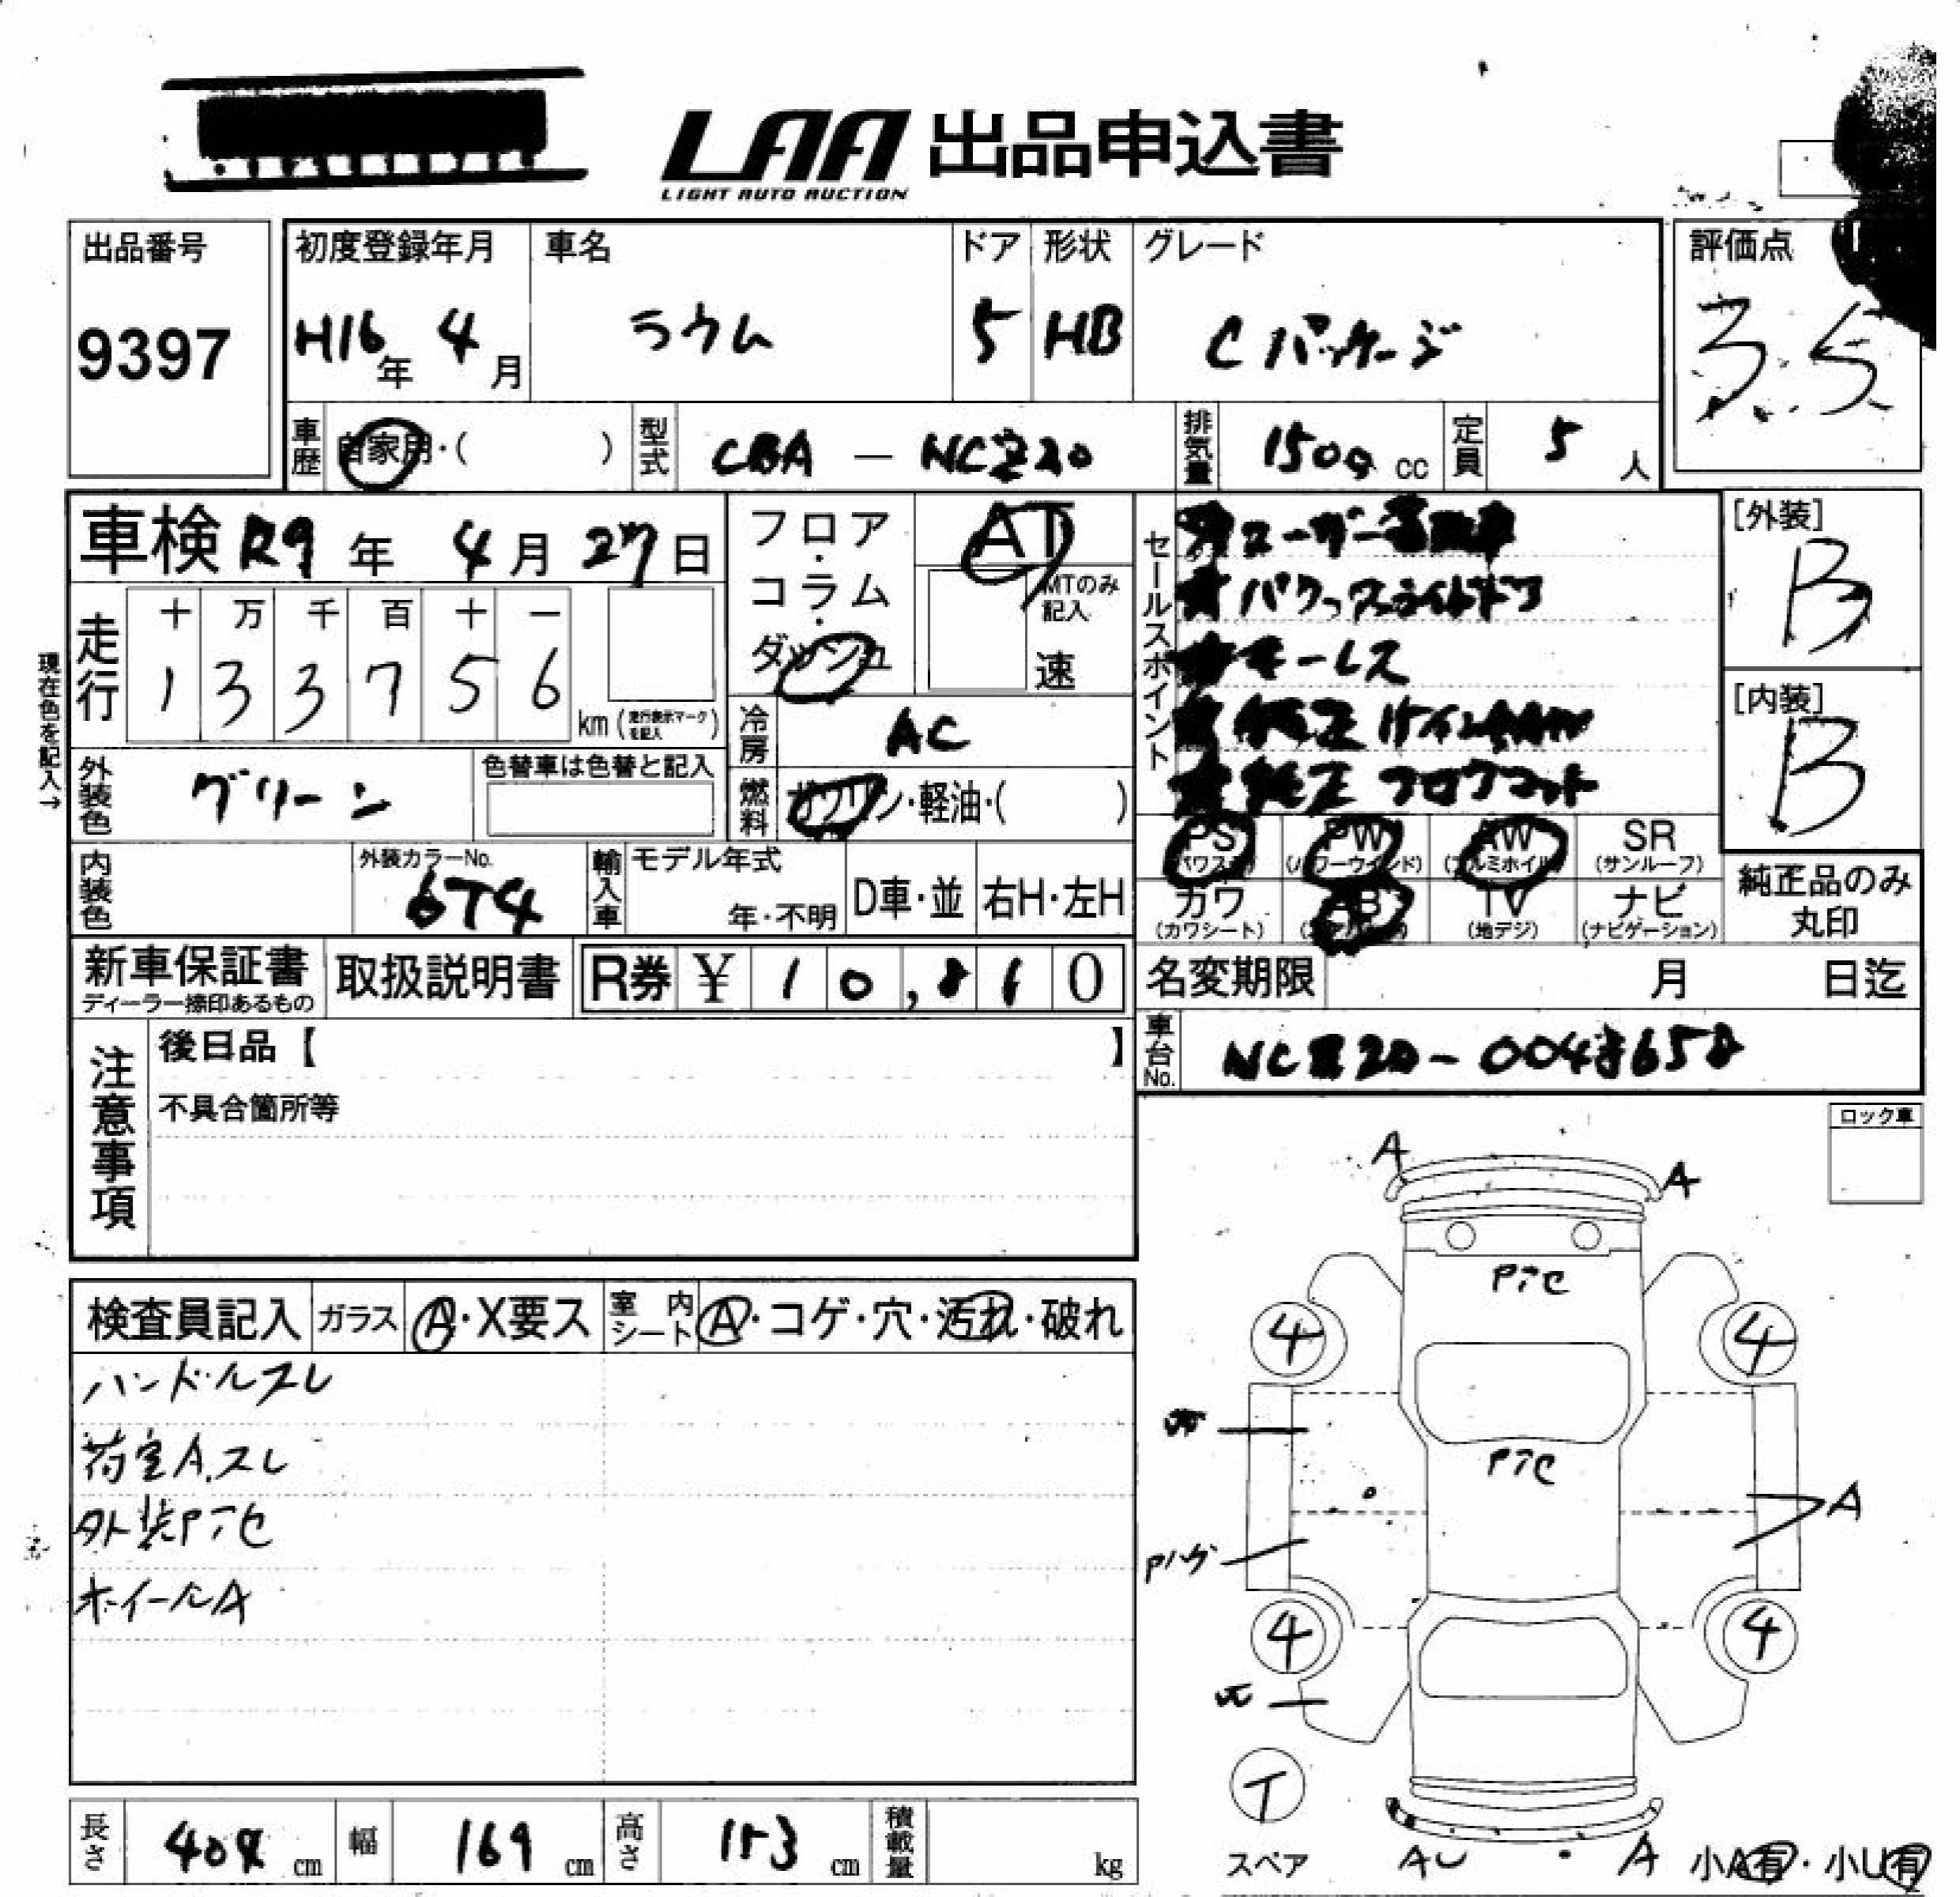 LAA 出品申込書
LIGHT AUTO AUCTION
出品番号
9397
初度登録年月
H16年 4月
車名
ラウム
ドア
5
形状
HB
グレード
Cパッケージ
評価点
3.5
車歴
自家用・( )
型式
CBA — NCZ20
排気量
1500 cc
定員
5 人
車検 R9年 4月 27日
現在色を記入→
走行
十 万 千 百 十 一
1 3 3 7 5 6
km (走行表示マークを記入)
フロア・コラム・ダッシュ
AT
MTのみ記入
速
冷房
AC
燃料
ガソリン・軽油・( )
外装色
グリーン
色替車は色替と記入
内装色
外装カラーNo.
6T4
輸入車
モデル年式
年・不明
D車・並
右H・左H
セールスポイント
キーレス
[外装]
B
[内装]
B
PS (パワステ)
PW (パワーウインド)
AW (アルミホイル)
SR (サンルーフ)
カワ (カワシート)
AB (エアバッグ)
TV (地デジ)
ナビ (ナビゲーション)
純正品のみ丸印
新車保証書
ディーラー捺印あるもの
取扱説明書
R券 ¥ 10,810
名変期限 月 日迄
車台No.
注意事項
後日品【 】
不具合箇所等
ロック車
検査員記入
ガラス
A・X要ス
室内シート
A・コゲ・穴・汚れ・破れ
ハンドルスレ
荷室A.スレ
外装Pテヒ
ホイールA
A
A
Pテヒ
4
4
Pテヒ
A
Pハゲ
4
4
T
スペア
AU
A
小A有・小U有
長さ
404 cm
幅
169 cm
高さ
153 cm
積載量
kg